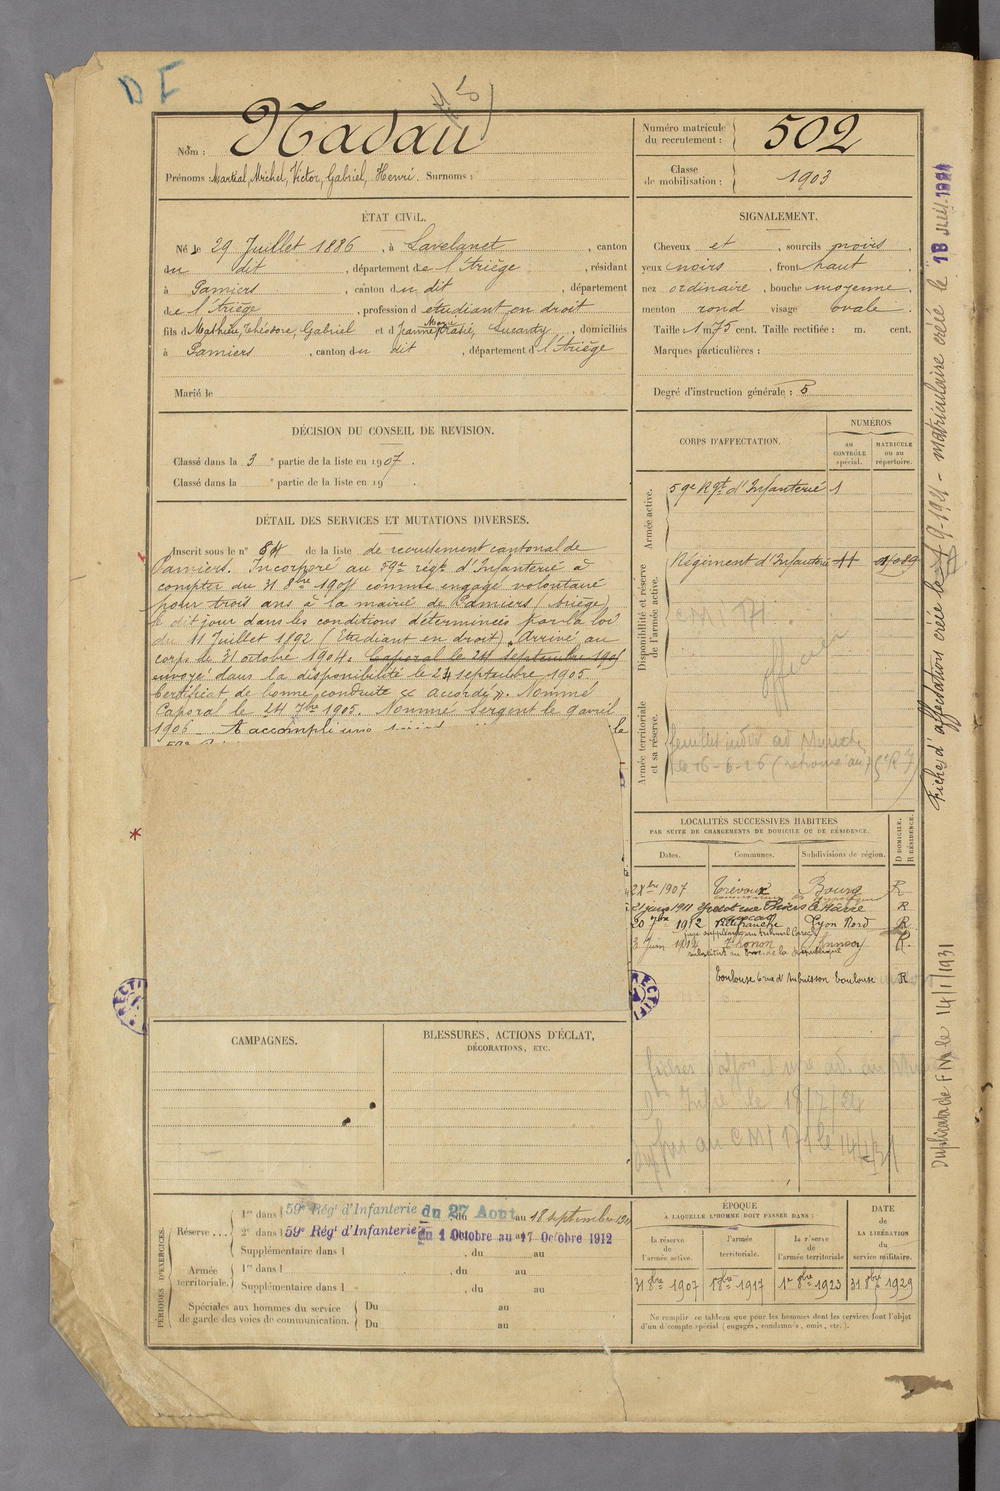 DE
Nom : Nadau
Prénoms : Martial, Michel, Victor, Gabriel, Henri. Surnoms :
Numéro matricule du recrutement : 502
Classe de mobilisation : 1903
ÉTAT CIVIL.
Né le 29 Juillet 1886, à Lavelanet, canton
du dit, département de l'Ariège, résidant
à Pamiers, canton du dit, département
de l'Ariège, profession d étudiant en droit
fils d Mathieu, Théodore, Gabriel et d Jeanne, Marie, domiciliés
à Pamiers, canton du dit, département d l'Ariège
Marié le
SIGNALEMENT.
Cheveux et, sourcils noirs
yeux noirs, front haut
nez ordinaire, bouche moyenne
menton rond visage ovale.
Taille : 1 m 75 cent. Taille rectifiée : m. cent.
Marques particulières :
Degré d'instruction générale : 5
DÉCISION DU CONSEIL DE REVISION.
Classé dans la 3e partie de la liste en 1907.
Classé dans la e partie de la liste en 19
DÉTAIL DES SERVICES ET MUTATIONS DIVERSES.
Inscrit sous le n° 84 de la liste de recrutement cantonal de
Pamiers. Incorporé au 59e régt d'Infanterie à
compter du 31 8bre 1904 comme engagé volontaire
pour trois ans à la mairie de Pamiers (Ariège)
le dit jour dans les conditions déterminées par la loi
du 11 Juillet 1892 (Etudiant en droit) Arrivé au
corps le 31 octobre 1904. Caporal le 24 septembre 1905
envoyé dans la disponibilité le 23 septembre 1905.
Certificat de bonne conduite « accordé ». Nommé
Caporal le 24 7bre 1905. Nommé Sergent le 9 avril
1906. A accompli une
CORPS D'AFFECTATION.
NUMÉROS
au CONTRÔLE spécial.
MATRICULE ou au répertoire.
Armée active.
59e Rgt d'Infanterie 1
Disponibilité et réserve de l'armée active.
Régiment d'Infanterie
officier
Armée territoriale et sa réserve.
LOCALITÉS SUCCESSIVES HABITÉES
PAR SUITE DE CHANGEMENTS DE DOMICILE OU DE RÉSIDENCE.
Dates.
Communes.
Subdivisions de région.
D DOMICILE. R RÉSIDENCE.
2 Xbre 1907 Trévoux Bourg R
21 1911 R
20 1912 Villefranche Lyon Nord R
3 Juin Thonon Annecy R.
substitut au Proc de la République
Toulouse 6 rue d'Aubuisson Toulouse R
Fiches d'affectation créée le 9-1921 - matriculaire créée le 18 JUIL. 1924
Duplicata de FM le 14/1/1931
RECTIFI
CAMPAGNES.
BLESSURES, ACTIONS D'ÉCLAT,
DÉCORATIONS, ETC.
PÉRIODES D'EXERCICES.
Réserve...
1re dans l 59e Régt d'Infanterie du 27 Aout au 18 septembre
2e dans l 59e Régt d'Infanterie du 1 Octobre au 17 Octobre 1912
Supplémentaire dans l , du au
Armée territoriale.
1re dans l , du au
Supplémentaire dans l , du au
Spéciales aux hommes du service
de garde des voies de communication.
Du au
Du au
ÉPOQUE
A LAQUELLE L'HOMME DOIT PASSER DANS :
la réserve de l'armée active.
l'armée territoriale.
la réserve de l'armée territoriale
DATE DE LA LIBÉRATION du service militaire.
31 8bre 1907
1 8bre 1917
1er 8bre 1923
31 8bre 1929
Ne remplir ce tableau que pour les hommes dont les services font l'objet
d'un décompte spécial (engagés, condamnés, omis, etc.).